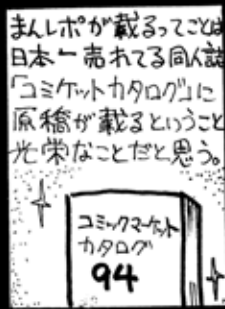 まんレポが載るってことは
日本一売れてる同人誌
「コミケットカタログ」に
原稿が載るということ
光栄なことだと思う。
コミックマーケット
カタログ
94